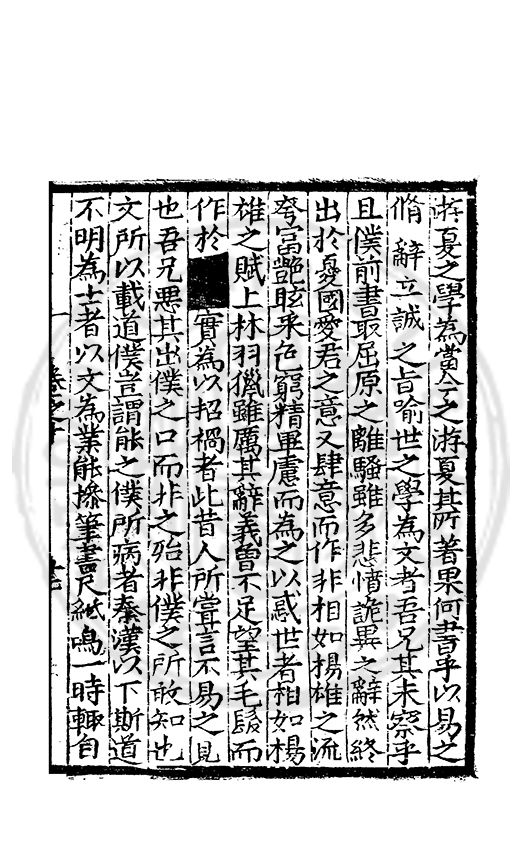 游夏之學為當今之游夏其所著果何書乎以易之
脩辭立誠之旨喻世之學為文者吾兄其未察乎
且僕前書取屈原之離騷雖多悲憤詭異之辭然終
出於憂國愛君之意又肆意而作非相如揚雄之流
夸富艷眩采色窮精畢慮而為之以惑世者相如楊
雄之賦上林羽獵雖厲其辭義曾不足望其毛髮而
作於■實為以招禍者此昔人所嘗言不易之見
也吾兄悪其出僕之口而非之殆非僕之所敢知也
文所以載道僕豈謂能之僕所病者秦漢以下斯道
不明為士者以文為業能操筆書尺紙鳴一時輒自